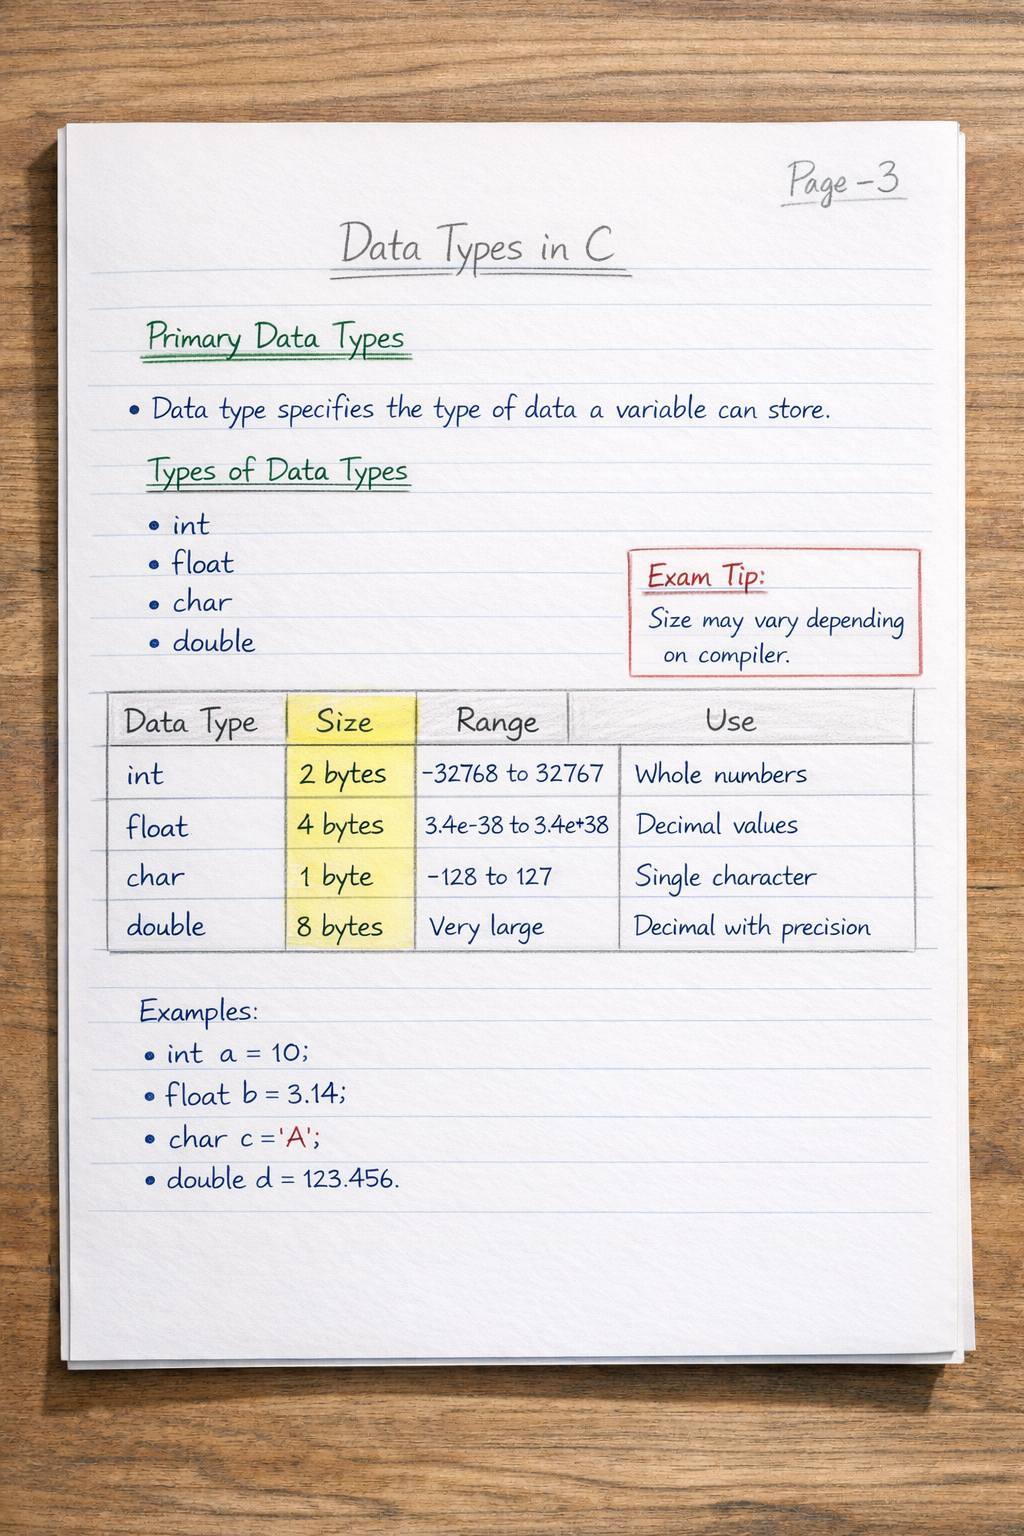 Page-3
Data Types in C
Primary Data Types
• Data type specifies the type of data a variable can store.
Types of Data Types
• int
• float
• char
• double
Exam Tip:
Size may vary depending
on compiler.
Data Type Size Range Use
int 2 bytes -32768 to 32767 Whole numbers
float 4 bytes 3.4e-38 to 3.4e+38 Decimal values
char 1 byte -128 to 127 Single character
double 8 bytes Very large Decimal with precision
Examples:
• int a = 10;
• float b = 3.14;
• char c ='A';
• double d = 123.456.